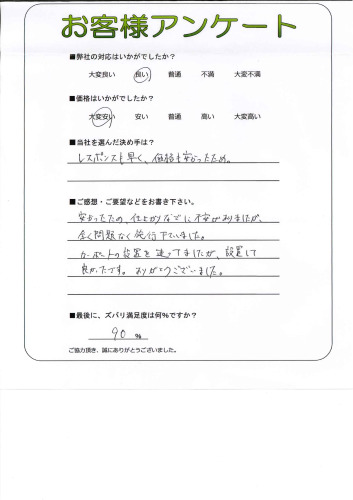 お客様アンケート
■弊社の対応はいかがでしたか？
大変良い 良い 普通 不満 大変不満
■価格はいかがでしたか？
大変安い 安い 普通 高い 大変高い
■当社を選んだ決め手は？
レスポンスも早く、価格も安かったため。
■ご感想・ご要望などをお書き下さい。
安かったため、仕上がりなどに不安がありましたが、
全く問題なく施行下さいました。
カーポートの設置を迷ってましたが、設置して
良かったです。ありがとうございました。
■最後に、ズバリ満足度は何%ですか？
90 %
ご協力頂き、誠にありがとうございました。